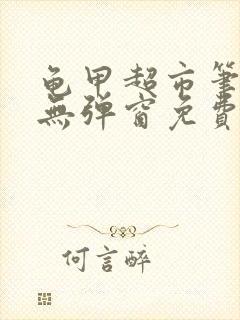 龟甲超市筆
無弹窗免費
何言醉